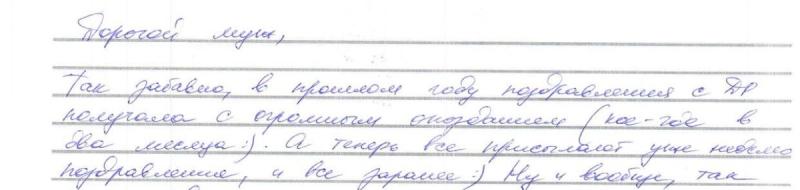 Дорогой муж,
Так забавно, в прошлом году поздравления с ДР
получала с огромным опозданием (кое-где в
два месяца :). А теперь все присылают уже неделю
поздравление, и все заранее :) Ну и вообще, так